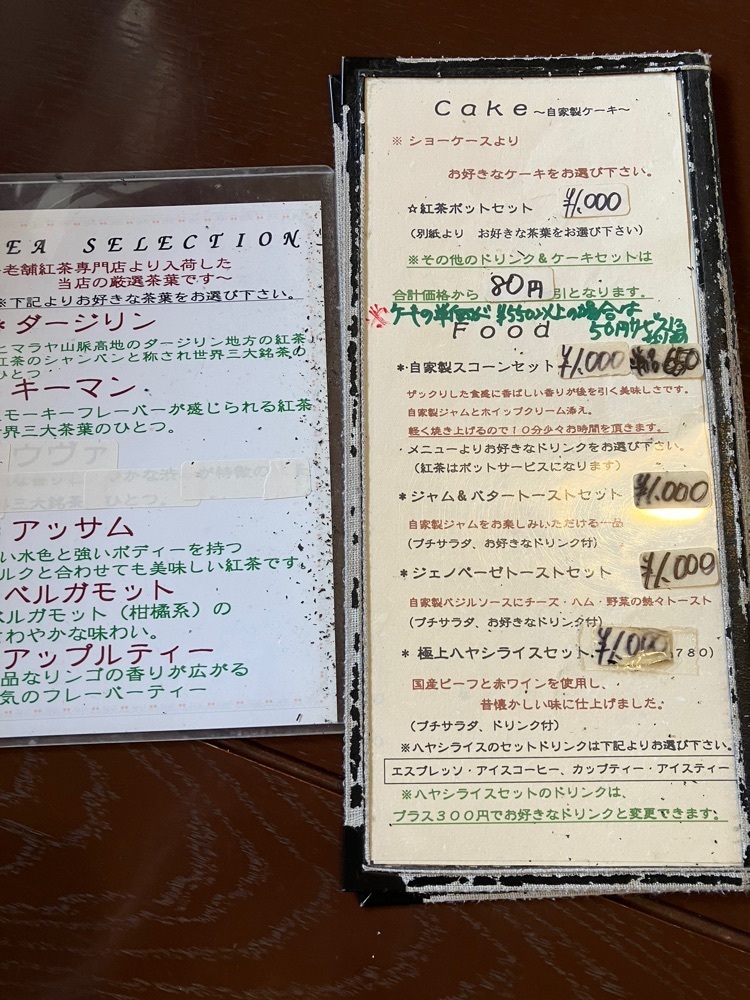 EA SELECTION
老舗紅茶専門店より入荷した
当店の厳選茶葉です～
※下記よりお好きな茶葉をお選び下さい。
* ダージリン
ヒマラヤ山脈高地のダージリン地方の紅茶
紅茶のシャンパンと称され世界三大銘茶の
ひとつ
キーマン
スモーキーフレーバーが感じられる紅茶
世界三大茶葉のひとつ。
ウヴァ
が特徴の
三大銘茶 ひとつ。
アッサム
い水色と強いボディーを持つ
ルクと合わせても美味しい紅茶です。
ベルガモット
ベルガモット（柑橘系）の
さわやかな味わい。
アップルティー
品なリンゴの香りが広がる
気のフレーバーティー
Cake ～自家製ケーキ～
※ ショーケースより
お好きなケーキをお選び下さい。
☆紅茶ポットセット ¥1,000
（別紙より お好きな茶葉をお選び下さい）
※その他のドリンク＆ケーキセットは
合計価格から 80円 引となります。
※ケーキの単価が¥550以上の場合は
50円
Food
*自家製スコーンセット ¥1,000 650
ザックリした食感に香ばしい香りが後を引く美味しさです。
自家製ジャムとホイップクリーム添え。
軽く焼き上げるので１０分少々お時間を頂きます。
・メニューよりお好きなドリンクをお選び下さい。
（紅茶はポットサービスになります）
*ジャム＆バタートーストセット ¥1,000
自家製ジャムをお楽しみいただける一品
（プチサラダ、お好きなドリンク付）
*ジェノベーゼトーストセット ¥1,000
自家製バジルソースにチーズ・ハム・野菜の熱々トースト
（プチサラダ、お好きなドリンク付）
* 極上ハヤシライスセット ¥1,000 780）
国産ビーフと赤ワインを使用し、
昔懐かしい味に仕上げました。
（プチサラダ、ドリンク付）
※ハヤシライスのセットドリンクは下記よりお選び下さい。
エスプレッソ・アイスコーヒー、カップティー・アイスティー
※ハヤシライスセットのドリンクは、
プラス３００円でお好きなドリンクと変更できます。